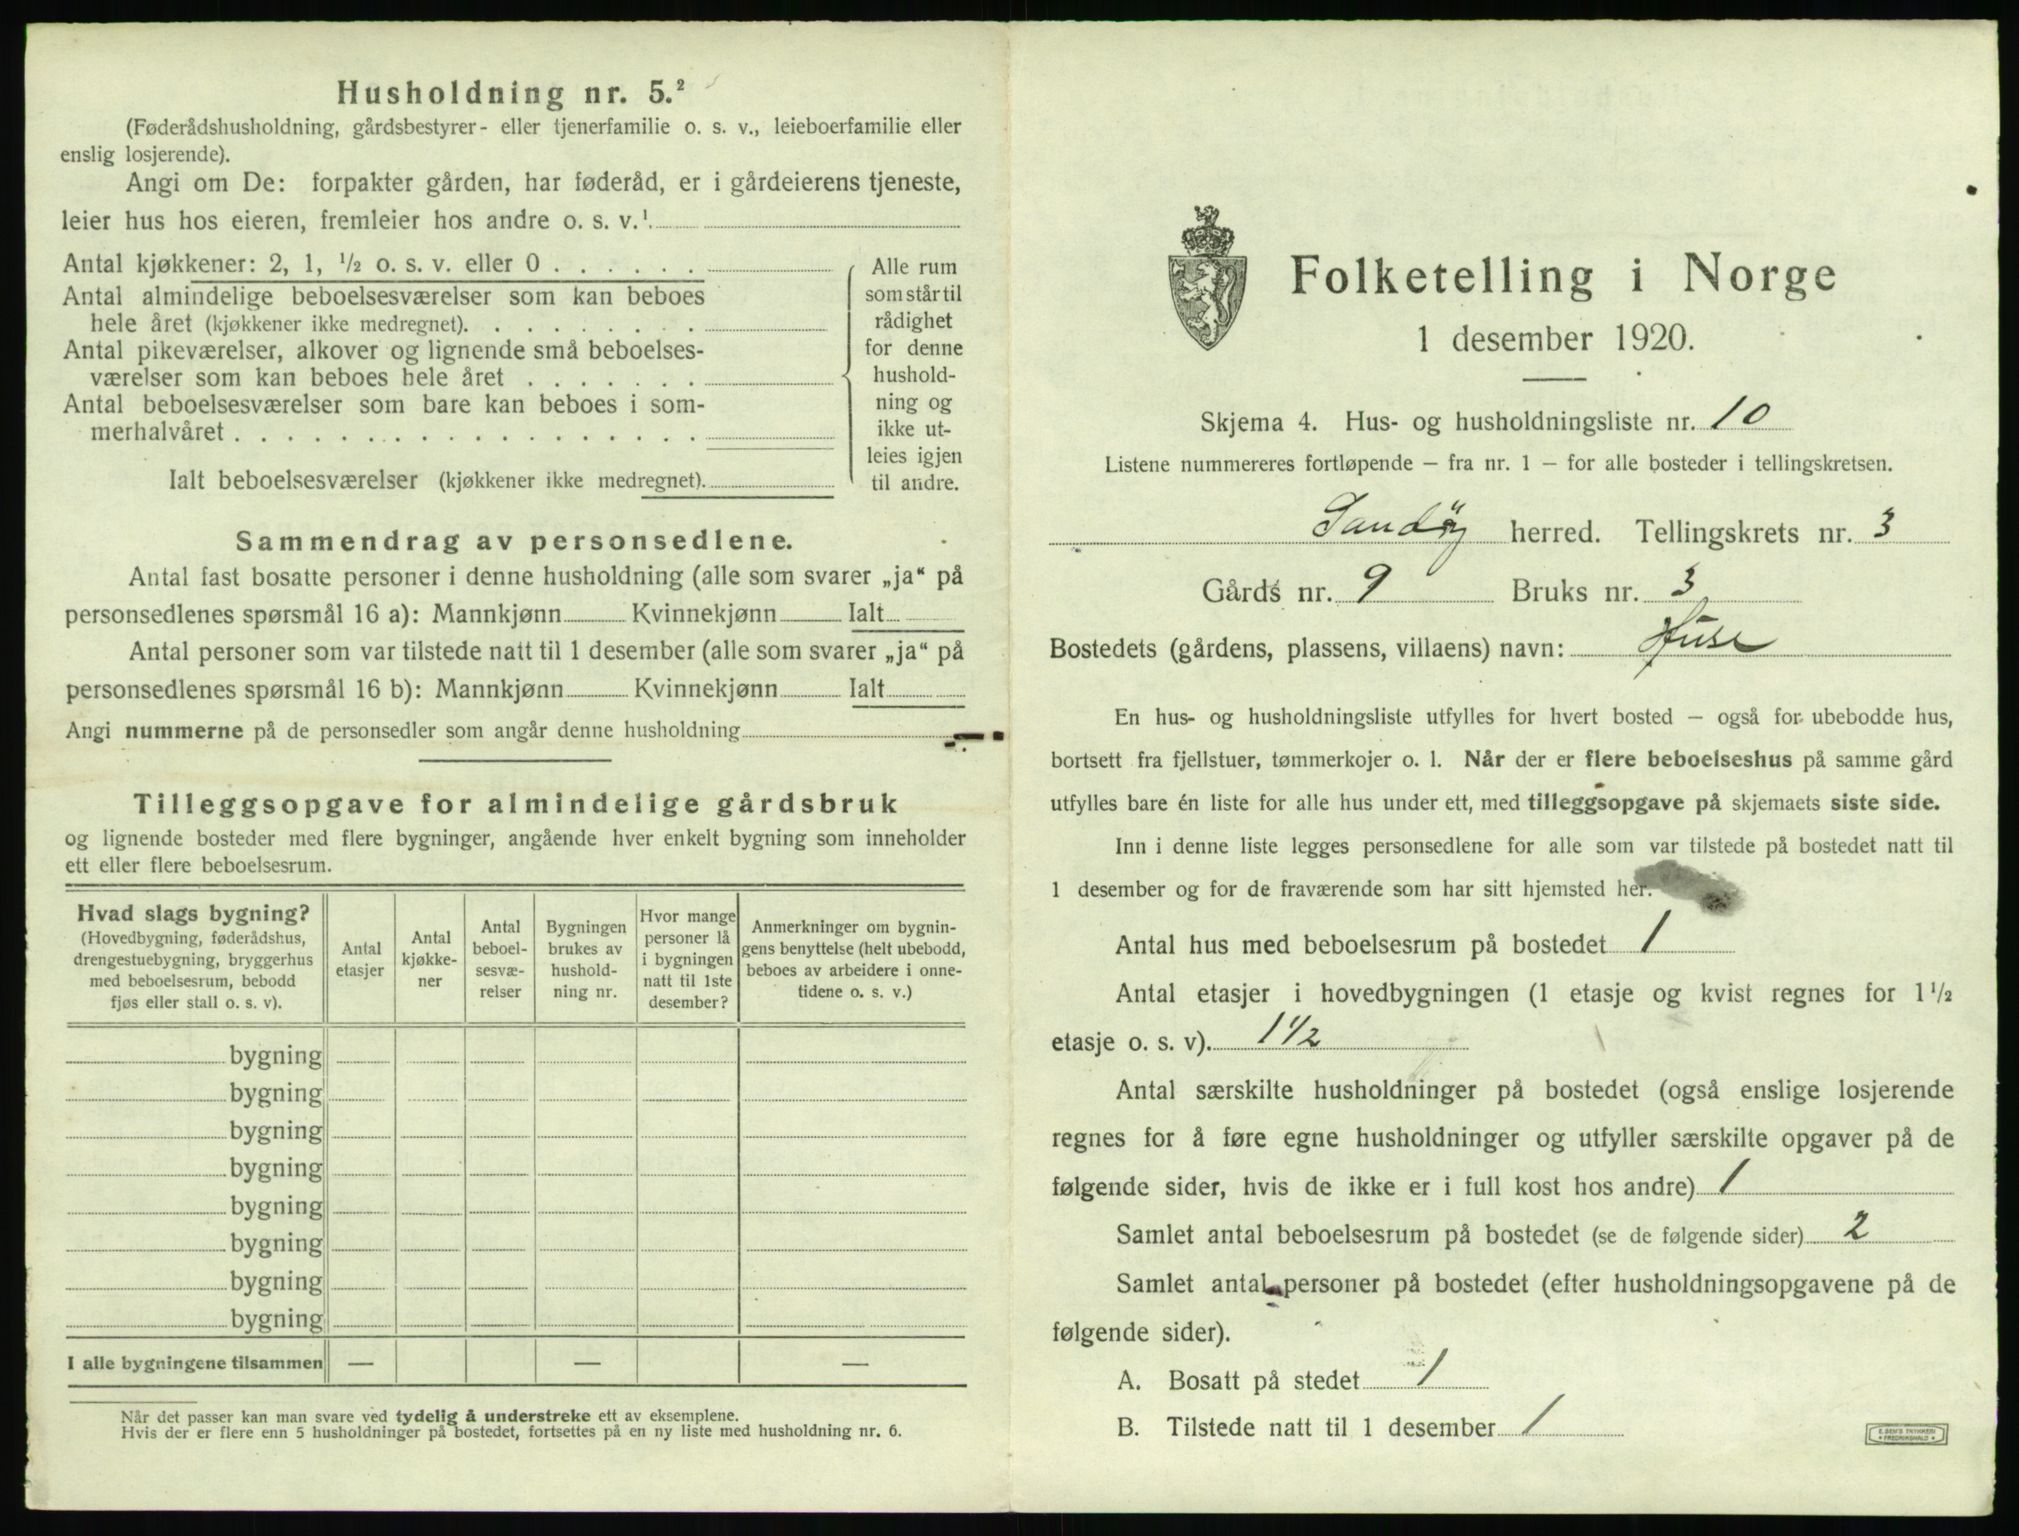 Husholdning nr. 5.²
(Føderådshusholdning, gårdsbestyrer- eller tjenerfamilie o. s. v., leieboerfamilie eller
enslig losjerende).
Angi om De: forpakter gården, har føderåd, er i gårdeierens tjeneste,
leier hus hos eieren, fremleier hos andre o. s. v.¹
Antal kjøkkener: 2, 1, ½ o. s. v. eller 0
Antal almindelige beboelsesværelser som kan beboes
hele året (kjøkkener ikke medregnet).
Antal pikeværelser, alkover og lignende små beboelses-
værelser som kan beboes hele året
Antal beboelsesværelser som bare kan beboes i som-
merhalvåret
Ialt beboelsesværelser (kjøkkener ikke medregnet).
Alle rum
som står til
rådighet
for denne
hushold-
ning og
ikke ut-
leies igjen
til andre.
Sammendrag av personsedlene.
Antal fast bosatte personer i denne husholdning (alle som svarer „ja“ på
personsedlenes spørsmål 16 a): Mannkjønn Kvinnekjønn Ialt
Antal personer som var tilstede natt til 1 desember (alle som svarer „ja“ på
personsedlenes spørsmål 16 b): Mannkjønn Kvinnekjønn Ialt
Angi nummerne på de personsedler som angår denne husholdning
Tilleggsopgave for almindelige gårdsbruk
og lignende bosteder med flere bygninger, angående hver enkelt bygning som inneholder
ett eller flere beboelsesrum.
Hvad slags bygning?
(Hovedbygning, føderådshus,
drengestuebygning, bryggerhus
med beboelsesrum, bebodd
fjøs eller stall o. s. v).
Antal
etasjer
Antal
kjøkke-
ner
Antal
beboel-
sesvæ-
relser
Bygningen
brukes av
hushold-
ning nr.
Hvor mange
personer lå
i bygningen
natt til 1ste
desember?
Anmerkninger om bygnin-
gens benyttelse (helt ubebodd,
beboes av arbeidere i onne-
tidene o. s. v.)
bygning
bygning
bygning
bygning
bygning
bygning
bygning
bygning
I alle bygningene tilsammen — — —
Når det passer kan man svare ved tydelig å understreke ett av eksemplene.
Hvis der er flere enn 5 husholdninger på bostedet, fortsettes på en ny liste med husholdning nr. 6.
Folketelling i Norge
1 desember 1920.
Skjema 4. Hus- og husholdningsliste nr. 10
Listene nummereres fortløpende – fra nr. 1 – for alle bosteder i tellingskretsen.
Sandöy herred. Tellingskrets nr. 3
Gårds nr. 9 Bruks nr. 3
Bostedets (gårdens, plassens, villaens) navn: Huse
En hus- og husholdningsliste utfylles for hvert bosted – også for ubebodde hus,
bortsett fra fjellstuer, tømmerkojer o. l. Når der er flere beboelseshus på samme gård
utfylles bare én liste for alle hus under ett, med tilleggsopgave på skjemaets siste side.
Inn i denne liste legges personsedlene for alle som var tilstede på bostedet natt til
1 desember og for de fraværende som har sitt hjemsted her.
Antal hus med beboelsesrum på bostedet 1
Antal etasjer i hovedbygningen (1 etasje og kvist regnes for 1½
etasje o. s. v). 1½
Antal særskilte husholdninger på bostedet (også enslige losjerende
regnes for å føre egne husholdninger og utfyller særskilte opgaver på de
følgende sider, hvis de ikke er i full kost hos andre) 1
Samlet antal beboelsesrum på bostedet (se de følgende sider) 2
Samlet antal personer på bostedet (efter husholdningsopgavene på de
følgende sider).
A. Bosatt på stedet 1
B. Tilstede natt til 1 desember 1